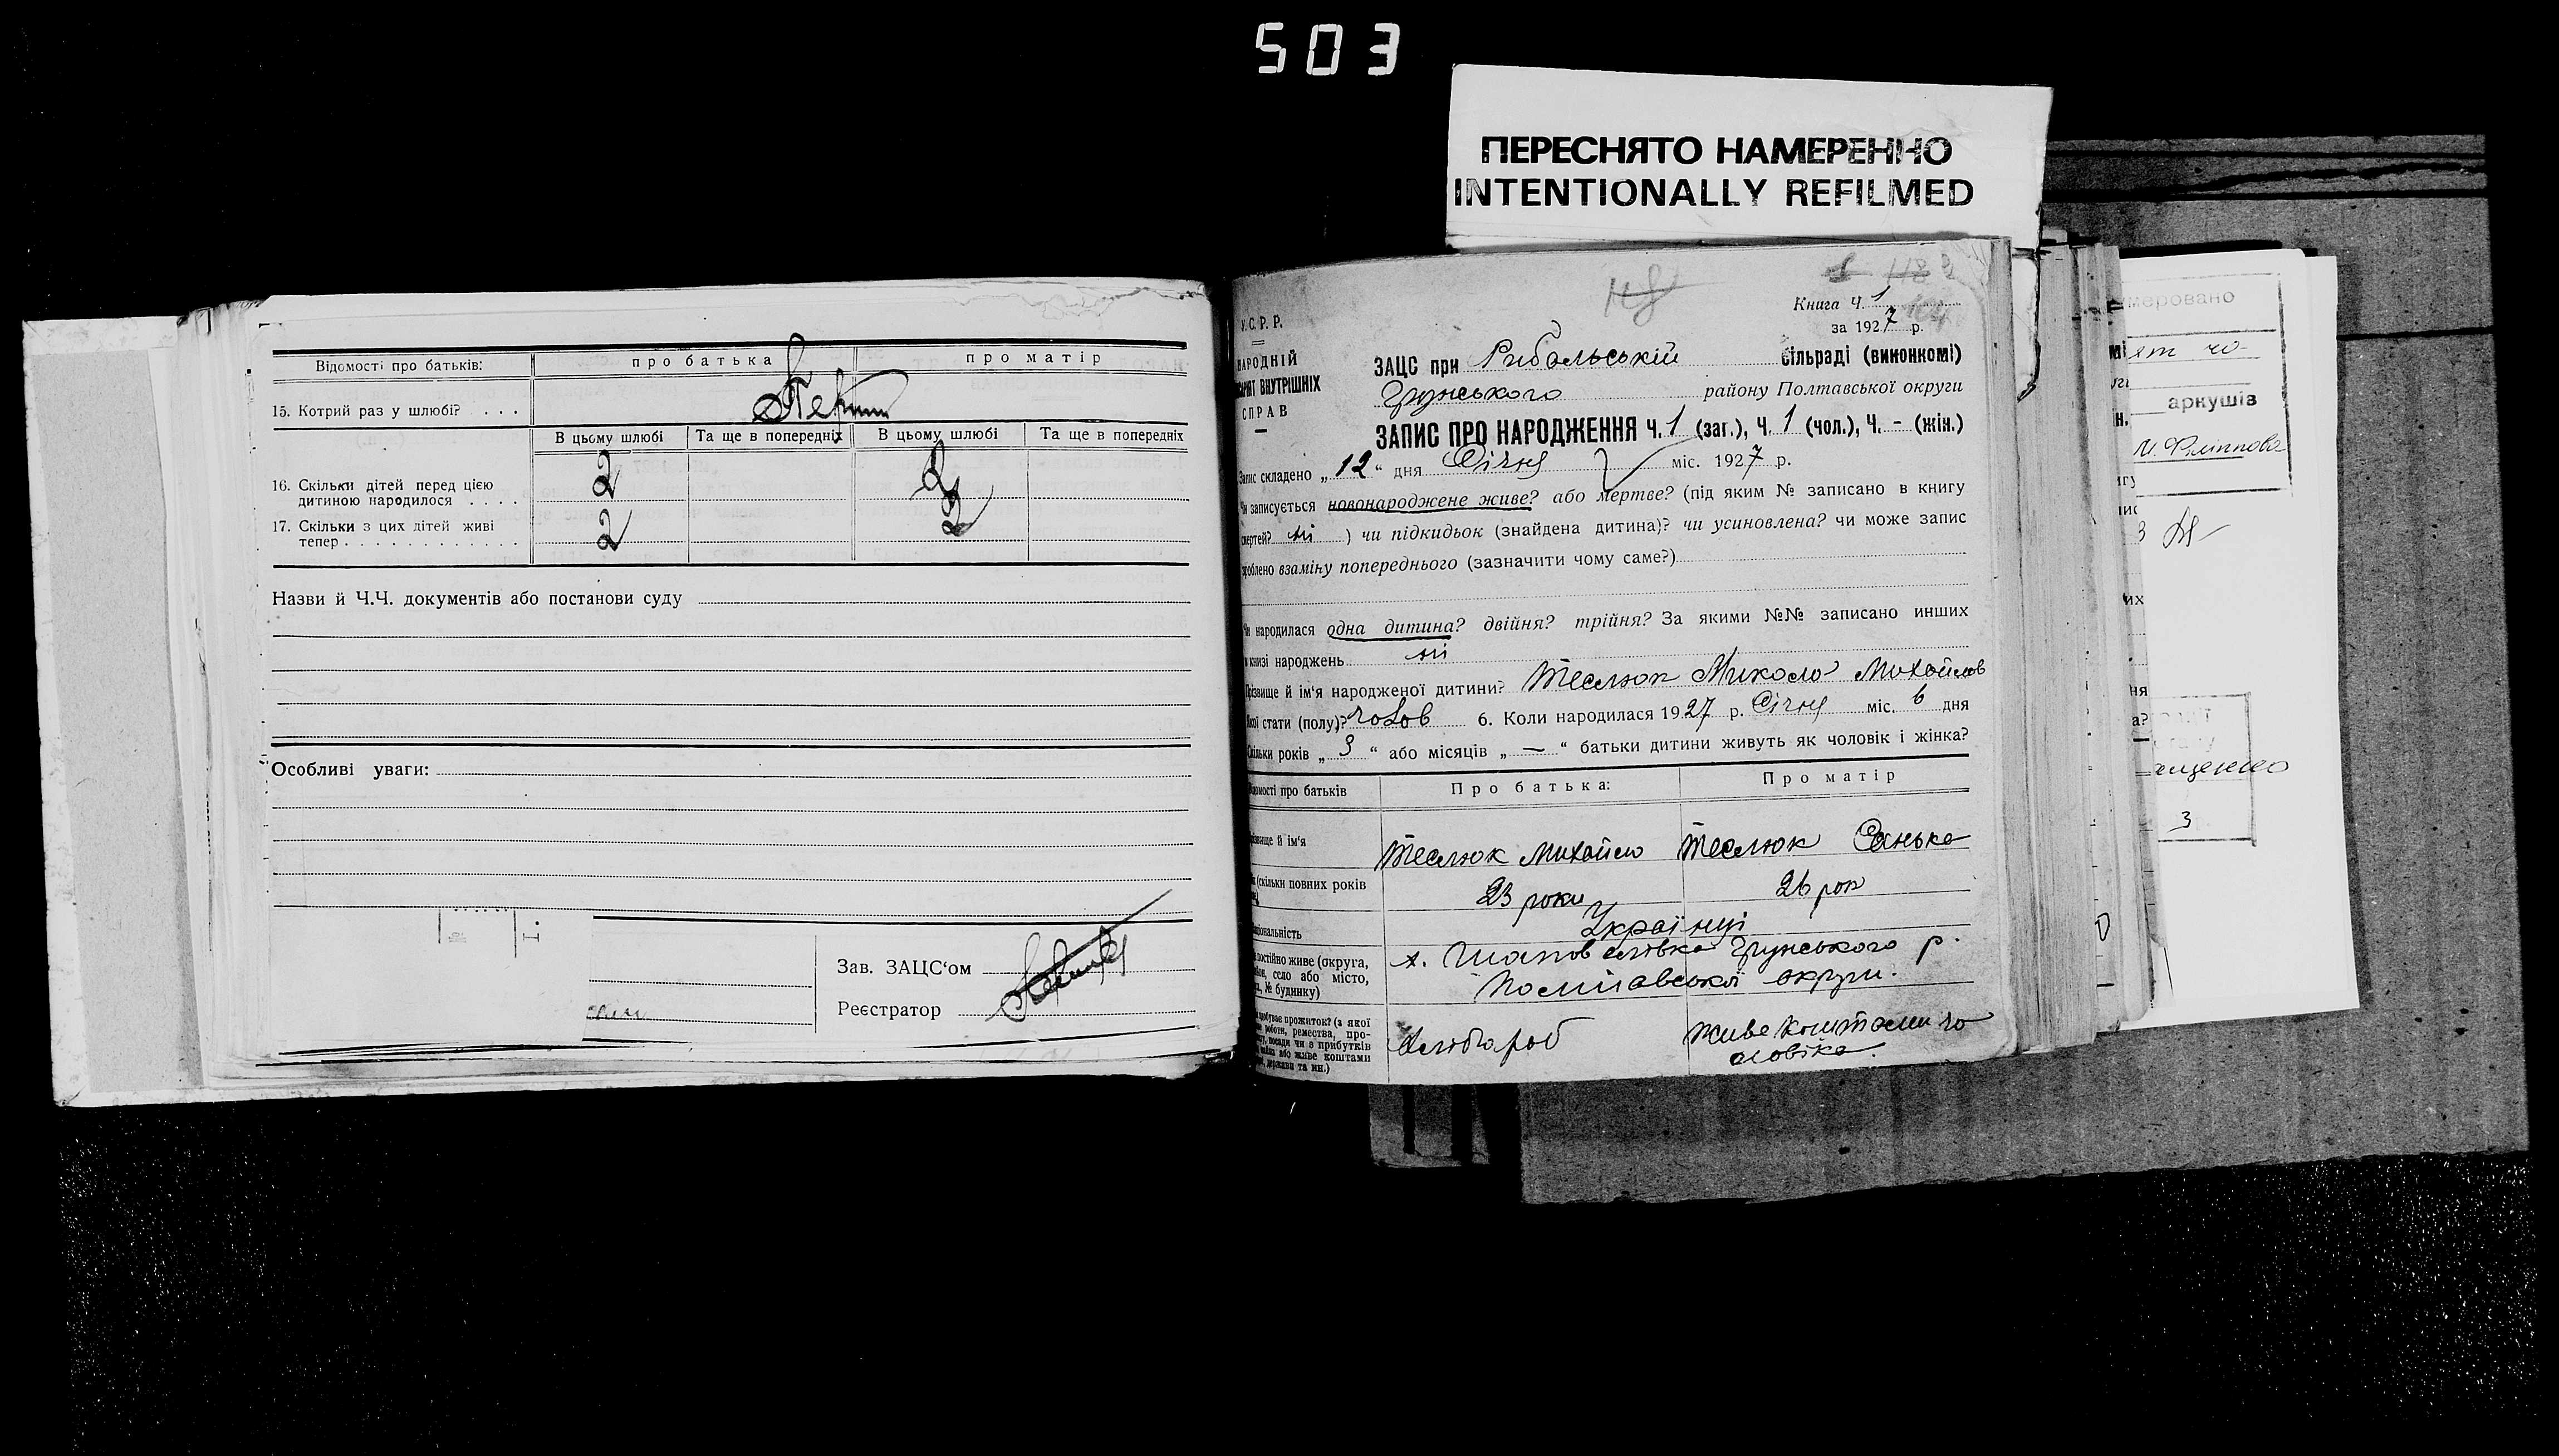 503
ПЕРЕСНЯТО НАМЕРЕННО
INTENTIONALLY REFILMED
Відомості про батьків:
про батька
про матір
15. Котрий раз у шлюбі? . . . .
В цьому шлюбі
Та ще в попередніх
В цьому шлюбі
Та ще в попередніх
16. Скільки дітей перед цією
дитиною народилося . . . .
2
2
17. Скільки з цих дітей живі
тепер . . . . . . . . . . . .
2
2
Назви й Ч.Ч. документів або постанови суду
Особливі уваги:
Зав. ЗАЦС'ом
Реєстратор
118
118
Книга Ч. 1
за 1927 р.
У.С.Р.Р.
НАРОДНІЙ
ВНУТРІШНІХ
СПРАВ
ЗАЦС при Рибальській сільраді (виконкомі)
Грунського району Полтавської округи
ЗАПИС ПРО НАРОДЖЕННЯ Ч. 1 (заг.), Ч. 1 (чол.), Ч. - (жін.)
Запис складено „12“ дня Січня міс. 1927 р.
Чи записується новонароджене живе? або мертве? (під яким № записано в книгу
смертей? ні ) чи підкидьок (знайдена дитина)? чи усиновлена? чи може запис
зроблено взаміну попереднього (зазначити чому саме?)
Чи народилася одна дитина? двійня? трійня? За якими №№ записано инших
в книзі народжень ні
Прізвище й ім'я народженої дитини? Теслюк Микола Михайлов
Якої стати (полу)? чолов 6. Коли народилася 1927 р. Січня міс. 6 дня
Скільки років „3“ або місяців „—“ батьки дитини живуть як чоловік і жінка?
Відомості про батьків
Про батька:
Про матір
Прізвище й ім'я
Теслюк Михайло
Теслюк
(скільки повних років
23 роки
26 рок
Національність
Українці
постійно живе (округа,
село або місто,
№ будинку)
х. Шаповалівка Грунського р.
Полтавської округи.
добуває прожиток? (з якої
роботи, ремества, про-
посади чи з прибутків
або живе коштами
держави та ин.)
Хлібороб
живе коштами чо
ловіка.
меровано
аркушів
3
3